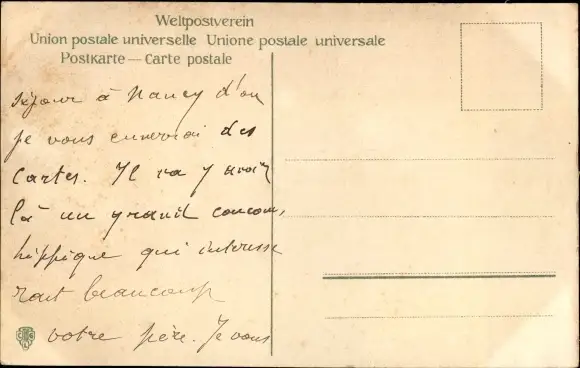 Weltpostverein
Union postale universelle Unione postale universale
Postkarte — Carte postale
séjour à Nancy d'où
je vous enverrai des
cartes. Il va y avoir
là un grand concours
hippique qui interesse
rait beaucoup
votre père. Je vous